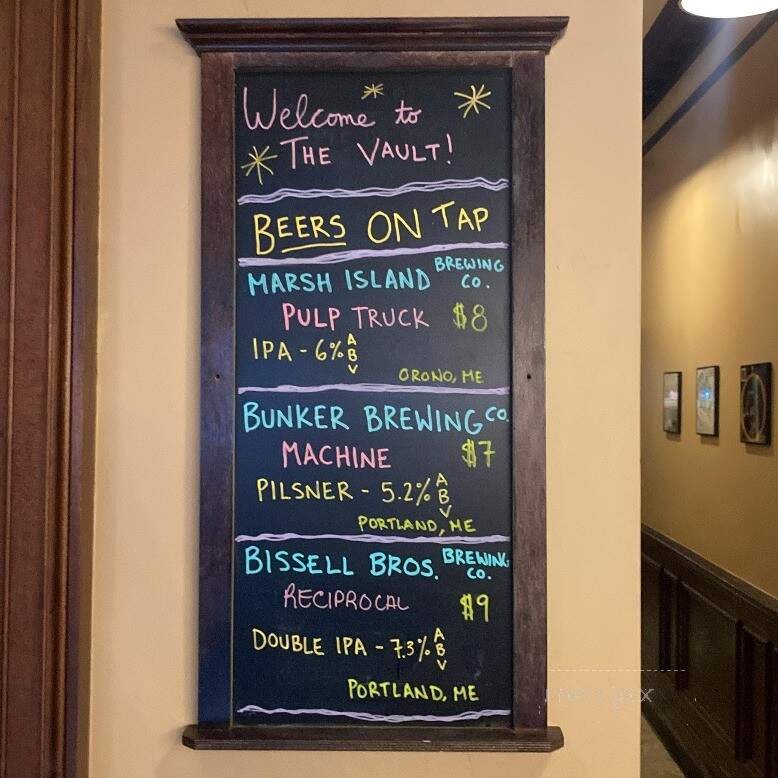 Welcome to
THE VAULT!
BEERS ON TAP
MARSH ISLAND BREWING CO.
PULP TRUCK $8
IPA - 6% ABV
ORONO, ME
BUNKER BREWING CO.
MACHINE $7
PILSNER - 5.2% ABV
PORTLAND, ME
BISSELL BROS. BREWING CO.
RECIPROCAL $9
DOUBLE IPA - 7.3% ABV
PORTLAND, ME